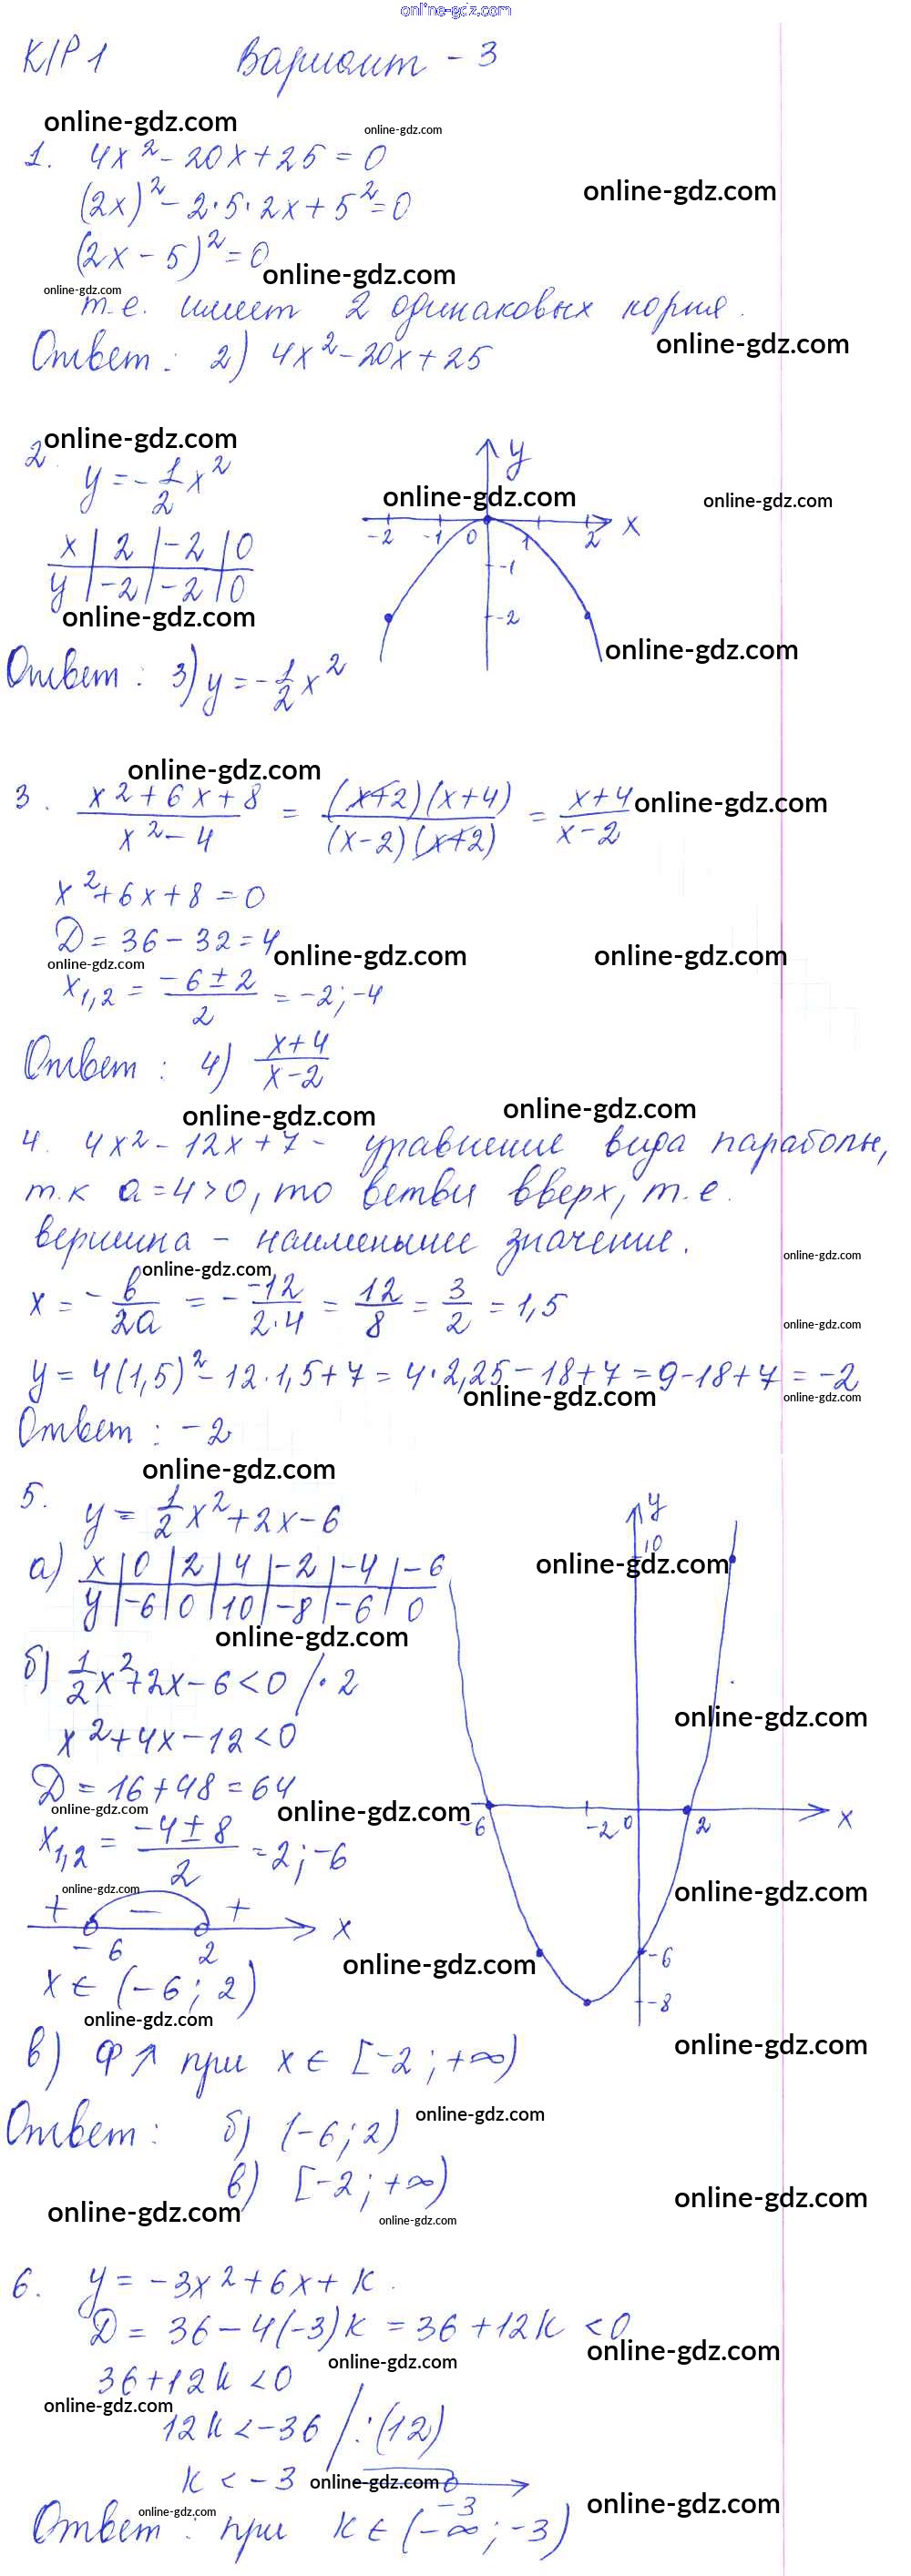 online-gdz.com
К/Р 1 Вариант - 3
online-gdz.com online-gdz.com
1. 4x² - 20x + 25 = 0
online-gdz.com
(2x)² - 2·5·2x + 5² = 0
(2x - 5)² = 0
online-gdz.com
online-gdz.com
т.е. имеет 2 одинаковых корня.
online-gdz.com
Ответ: 2) 4x² - 20x + 25
online-gdz.com
2. y = -1/2 x²
online-gdz.com online-gdz.com
x | 2 | -2 | 0
y | -2 | -2 | 0
y
-2 -1 0 1 2 x
-1
-2
online-gdz.com
online-gdz.com
Ответ: 3) y = -1/2 x²
online-gdz.com
3. (x² + 6x + 8)/(x² - 4) = ((x+2)(x+4))/((x-2)(x+2)) = (x+4)/(x-2)
online-gdz.com
x² + 6x + 8 = 0
D = 36 - 32 = 4
online-gdz.com online-gdz.com online-gdz.com
x1,2 = (-6 ± 2)/2 = -2; -4
Ответ: 4) (x+4)/(x-2)
online-gdz.com online-gdz.com
4. 4x² - 12x + 7 - уравнение вида параболы,
т.к a = 4 > 0, то ветви вверх, т.е.
вершина - наименьшее значение.
online-gdz.com online-gdz.com
x = -b/2a = - -12/2·4 = 12/8 = 3/2 = 1,5
online-gdz.com
y = 4(1,5)² - 12·1,5 + 7 = 4·2,25 - 18 + 7 = 9 - 18 + 7 = -2
online-gdz.com online-gdz.com
Ответ: -2
online-gdz.com
5. y = 1/2 x² + 2x - 6
а) x | 0 | 2 | 4 | -2 | -4 | -6
y | -6 | 0 | 10 | -8 | -6 | 0
online-gdz.com
y
10
online-gdz.com
-6 -2 0 2 x
-6
-8
б) 1/2 x² + 2x - 6 < 0 /·2
online-gdz.com
x² + 4x - 12 < 0
D = 16 + 48 = 64
online-gdz.com online-gdz.com
x1,2 = (-4 ± 8)/2 = 2; -6
online-gdz.com online-gdz.com
+ - + x
-6 2
online-gdz.com
x ∈ (-6; 2)
online-gdz.com
online-gdz.com
в) Ф↗ при x ∈ [-2; +∞)
online-gdz.com
Ответ: б) (-6; 2)
в) [-2; +∞)
online-gdz.com online-gdz.com online-gdz.com
6. y = -3x² + 6x + k.
D = 36 - 4(-3)k = 36 + 12k < 0
online-gdz.com online-gdz.com
36 + 12k < 0
online-gdz.com
12k < -36 /:(12)
k < -3
online-gdz.com
-3
online-gdz.com online-gdz.com
Ответ: при k ∈ (-∞; -3)